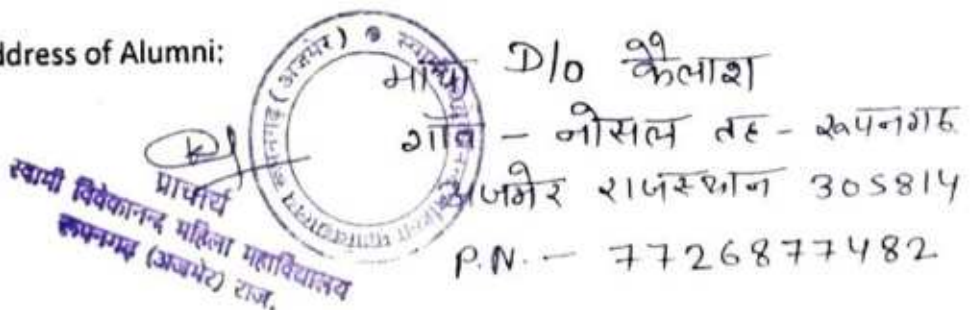 ddress of Alumni:
माया D/o कैलाश
गांव - नोसल तह - रूपनगढ
अजमेर राजस्थान 305814
P.N. - 7726877482
प्राचार्य
स्वामी विवेकानन्द महिला महाविद्यालय
रूपनगढ़ (अजमेर) राज.
रूपनगढ़ (अजमेर)